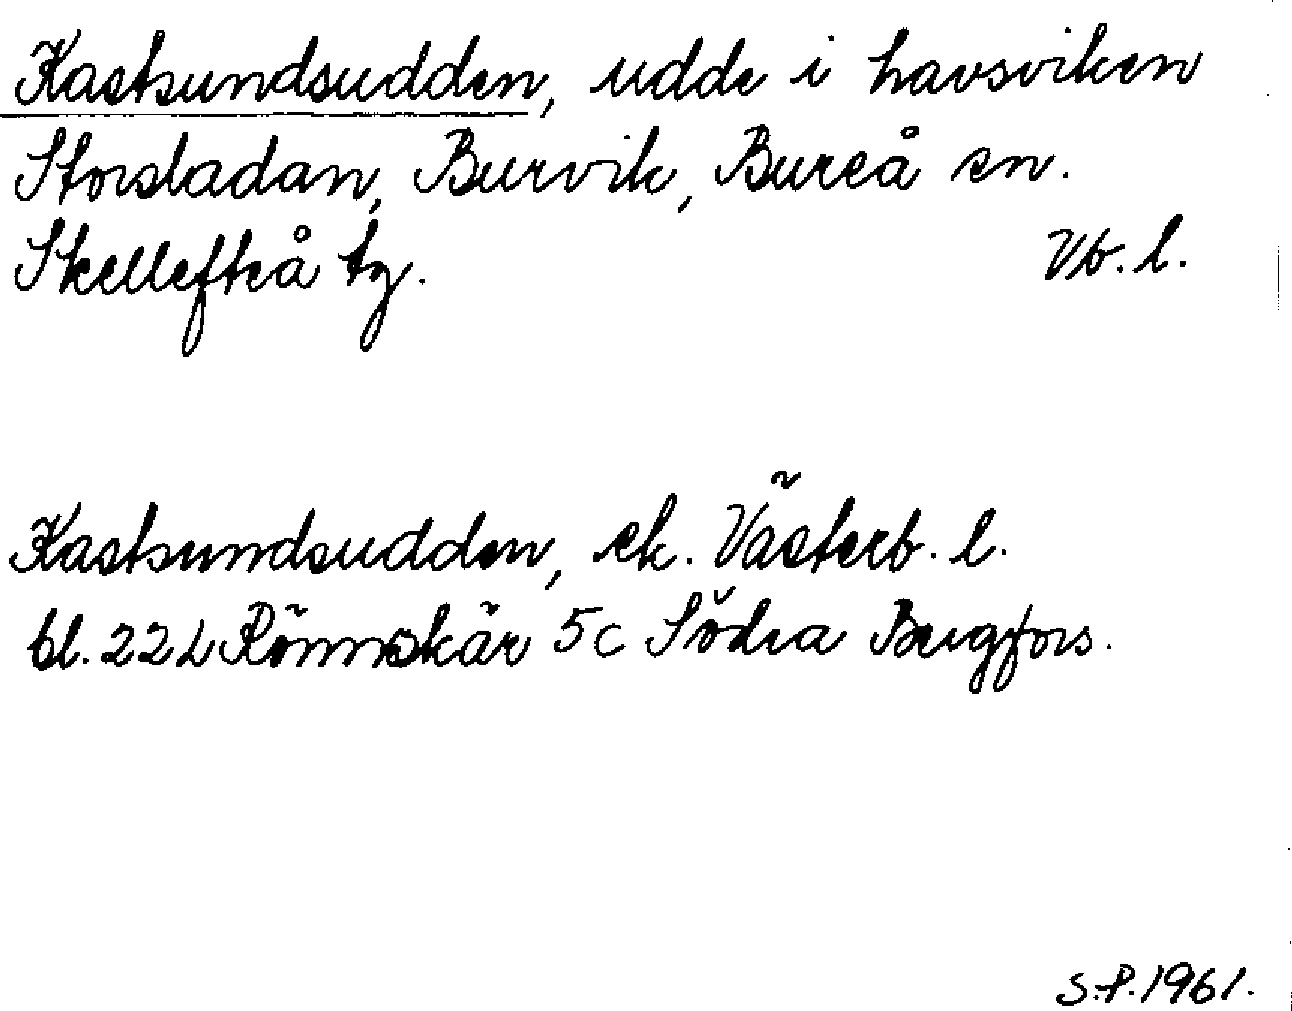 Kastsundsudden, udde i havsviken
Storsladan, Burvik, Bureå sn.
Skellefteå tg. Vb. l.
Kastsundsudden, ek. Västerb. l.
bl. 22 L Rönnskär 5c Södra Bergfors.
S.P. 1961.